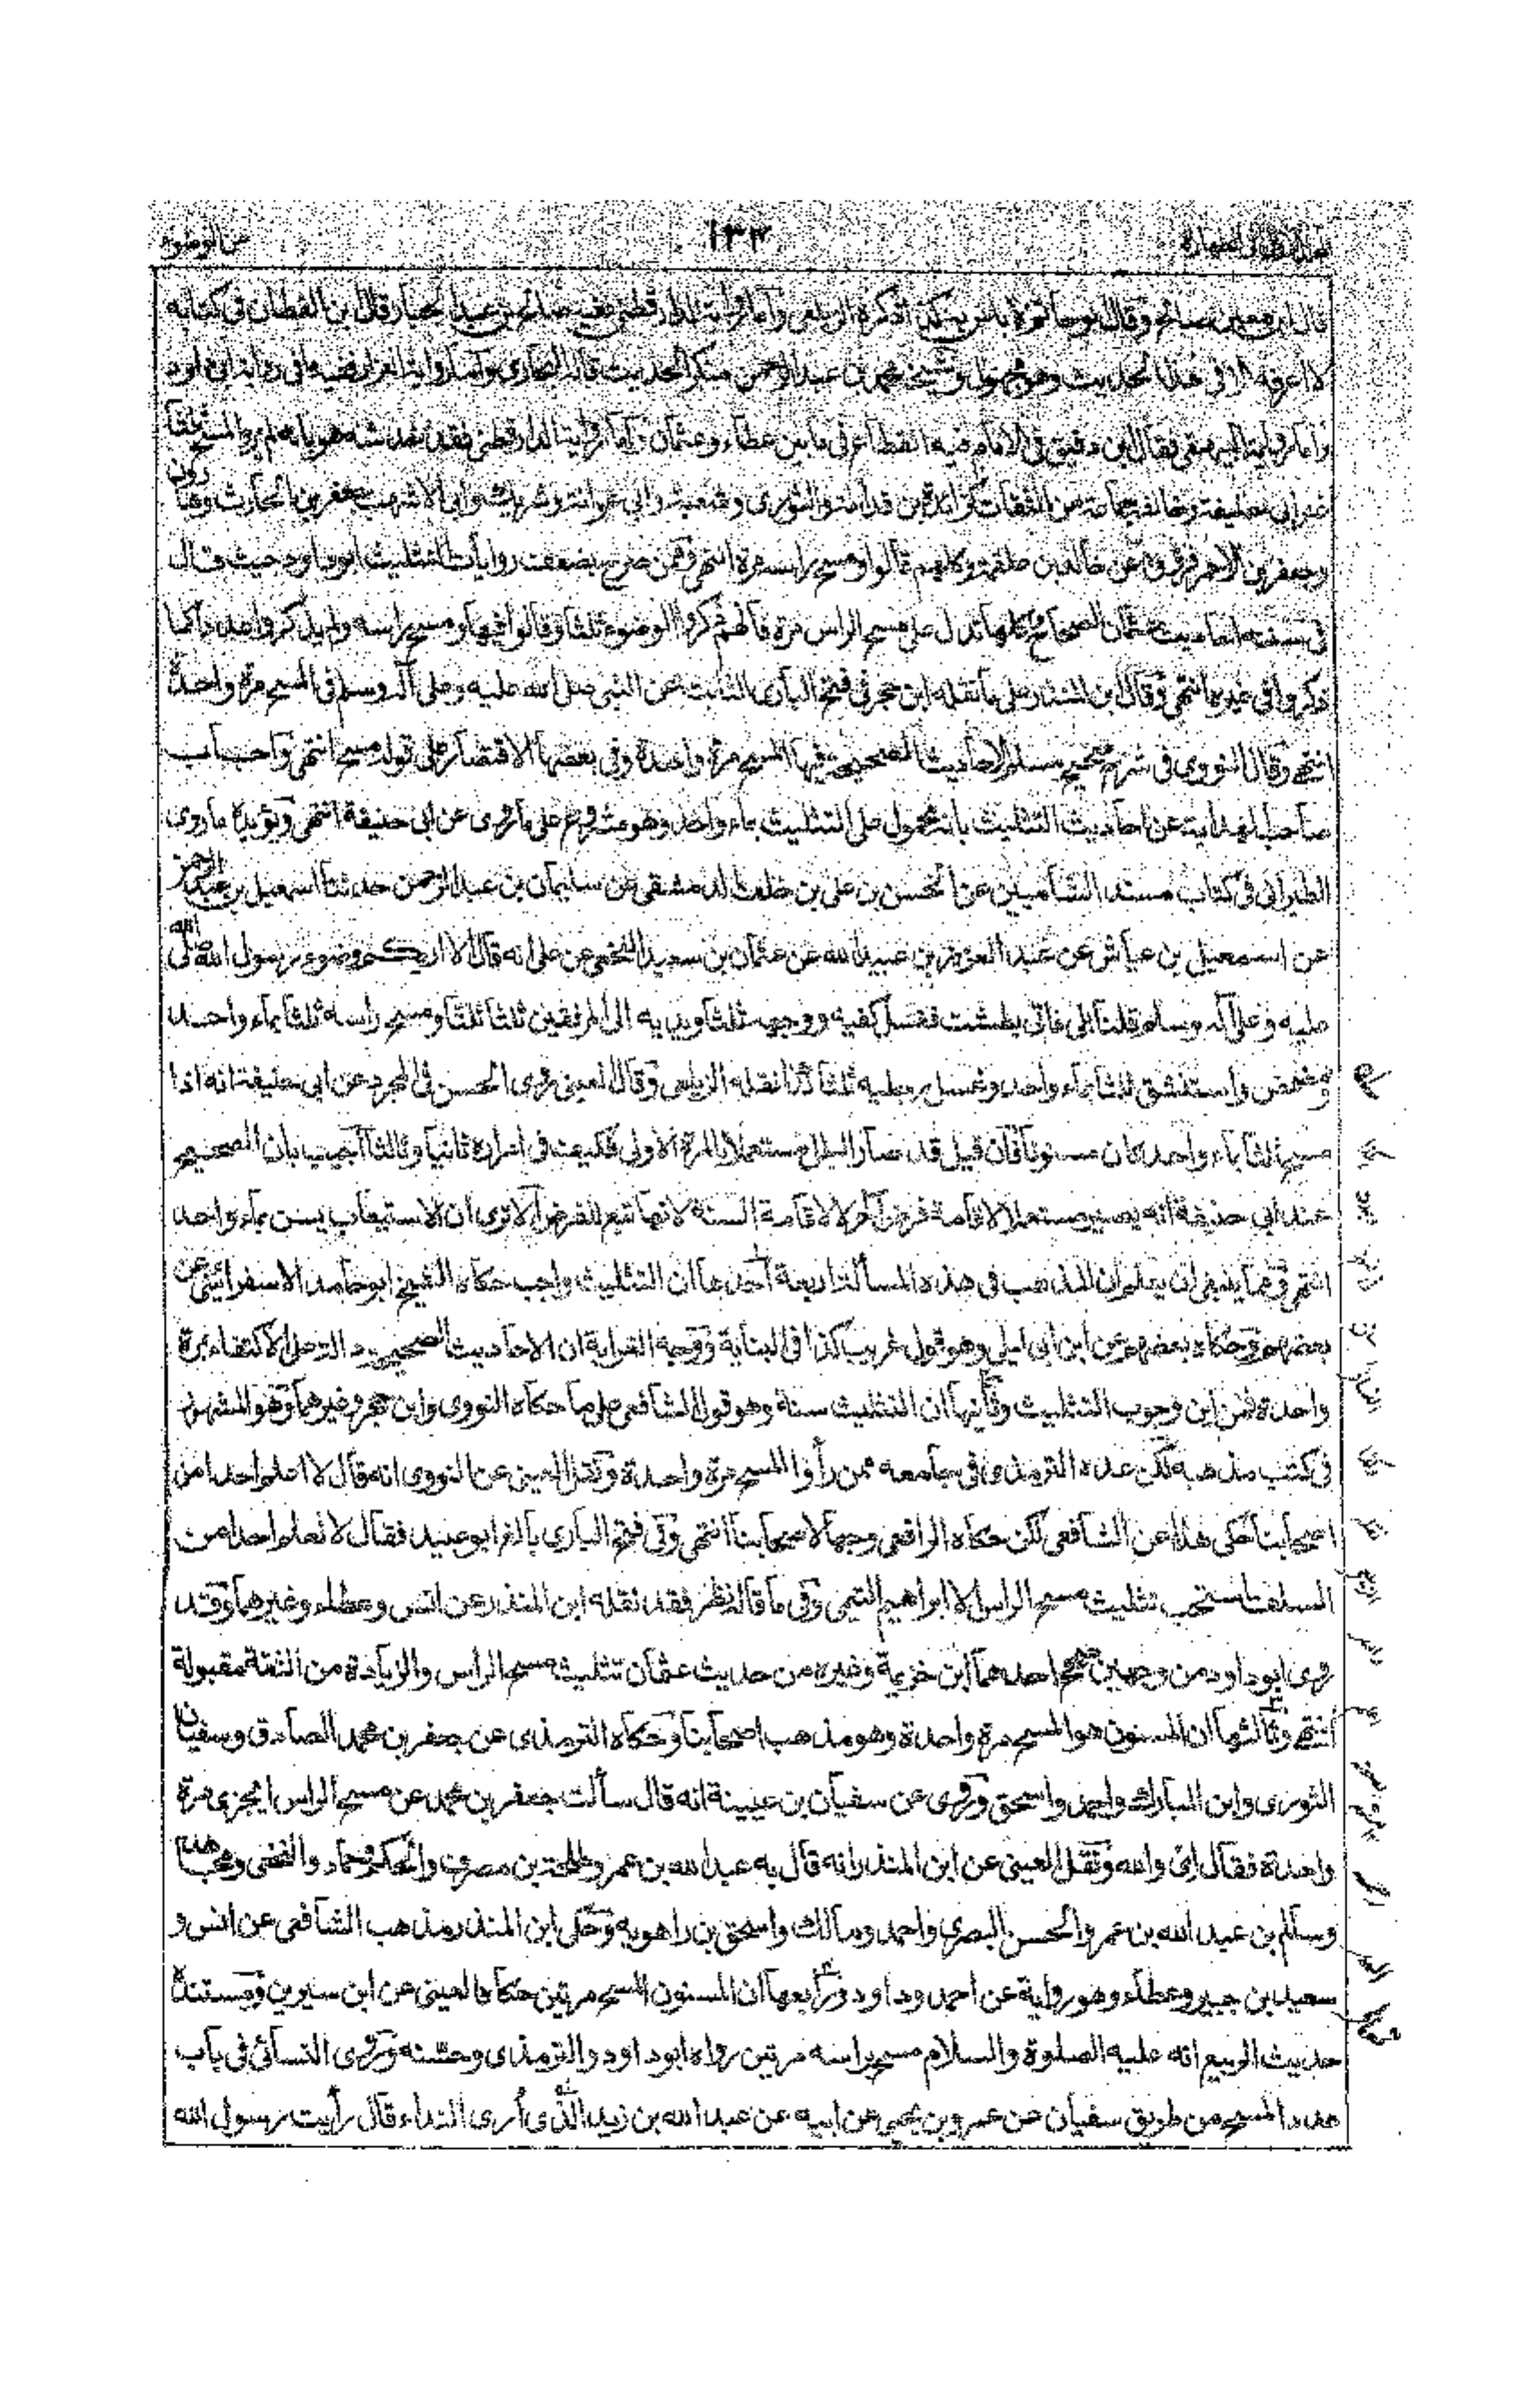 ١٣٢
قال ابن معين صالح وقال ابو حاتم لا باس به ذكره الزيلعي واما رواية الدارقطني ففيه صالح بن عبد الجبار قال ابن القطان في كتابه
لا اعرفه الا في هذا الحديث وهو مجهول وشيخه محمد بن عبد الرحمن منكر الحديث قاله البخاري
واما رواية البيهقي فقال ابن دقيق في الامام فيه انقطاع في ما بين عطاء وعثمان واما رواية الدارقطني فقد نقدته هو بانه لم يرو المسح ثلثا
غير ابي حنيفة وخالفه جماعة من الثقات كزائدة بن قدامة والثوري وشعبة وابي عوانة وشريك وابي الاشهب جعفر بن الحارث وهارون
وجعفر بن الاحمر فرووه عن خالد بن علقمة وكلهم قالوا ومسح راسه مرة انتهى وممن صرح بضعف روايات التثليث ابو داود حيث قال
في سننه احاديث عثمان الصحاح كلها تدل على مسح الراس مرة فانهم ذكروا الوضوء ثلثا وقالوا فيها ومسح راسه ولم يذكروا عددا كما
ذكروا في غيره انتهى وقال ابن المنذر على ما نقله ابن حجر في فتح الباري الثابت عن النبي صلى الله عليه وعلى آله وسلم في المسح مرة واحدة
انتهى وقال النووي في شرح صحيح مسلم الاحاديث الصحيحة فيها المسح مرة واحدة وفي بعضها الاقتصار على قوله مسح انتهى واجاب
صاحب الهداية عن احاديث التثليث بانه محمول على التثليث بماء واحد وهو مشروع على ما روى عن ابي حنيفة انتهى ويؤيده ما روى
الطبراني في كتاب مسند الشاميين عن الحسن بن علي بن خلف الدمشقي عن سليمان بن عبد الرحمن حدثنا اسمعيل بن عبد الرحمن
عن اسمعيل بن عياش عن عبد العزيز بن عبيد الله عن عثمان بن سعيد النخعي عن علي انه قال الا اريكم وضوء رسول الله صلى الله
عليه وعلى آله وسلم قلنا بلى فاتى بطشت فغسل كفيه ووجهه ثلثا ويديه الى المرفقين ثلثا ثلثا ومسح راسه ثلثا بماء واحد
ومضمض واستنشق ثلثا بماء واحد وغسل رجليه ثلثا كذا نقله الزيلعي وقال العيني روى الحسن في المجرد عن ابي حنيفة انه اذا
مسح ثلثا بماء واحد كان مسنونا فان قيل قد صار البلل مستعملا بالمرة الاولى فكيف في امراره ثانيا وثالثا اجيب بان الصحيح
عند ابي حنيفة انه يصير مستعملا لاقامة فرض آخر لا لاقامة السنة لانها تبع للفرض الا ترى ان الاستيعاب يسن بماء واحد
انتهى ومما ينبغي ان يعلم ان المذاهب في هذه المسألة اربعة احدها ان التثليث واجب حكاه الشيخ ابو حامد الاسفرائني عن
بعضهم وحكاه بعضهم عن ابن ابي ليلى وهو قول غريب كذا في البناية ووجه الغرابة ان الاحاديث الصحيحة وردت على الاكتفاء بمرة
واحدة فمن اين وجوب التثليث وثانيها ان التثليث سنة وهو قول الشافعي على ما حكاه النووي وابن حجر وغيرهما وهو المشهور
في كتب مذهبه لكن عده الترمذي في جامعه ممن رأوا المسح مرة واحدة ونقل العيني عن النووي انه قال لا اعلم احدا من
اصحابنا حكى هذا عن الشافعي لكن حكاه الرافعي وجها لاصحابنا انتهى وفي فتح الباري بالغ ابو عبيد فقال لا نعلم احدا من
السلف استحب تثليث مسح الراس الا ابراهيم التيمي وفي ما قاله نظر فقد نقله ابن المنذر عن انس وعطاء وغيرهما وقد
روى ابو داود من وجهين صحح احدهما ابن خزيمة وغيره من حديث عثمان تثليث مسح الراس والزيادة من الثقة مقبولة
انتهى وثالثها ان المسنون هو المسح مرة واحدة وهو مذهب اصحابنا وحكاه الترمذي عن جعفر بن محمد الصادق وسفيان
الثوري وابن المبارك واحمد واسحق وروى عن سفيان بن عيينة انه قال سألت جعفر بن محمد عن مسح الراس ايجزى مرة
واحدة فقال اي والله ونقل العيني عن ابن المنذر انه قال به عبد الله بن عمر وطلحة بن مصرف والحكم وحماد والنخعي ومجاهد
وسالم بن عبد الله بن عمر والحسن البصري واحمد ومالك واسحق بن راهويه وحكى ابن المنذر مذهب الشافعي عن انس و
سعيد بن جبير وعطاء وهو رواية عن احمد وداود ورابعها ان المسنون المسح مرتين حكاه العيني عن ابن سيرين ومستنده
حديث الربيع انه عليه الصلوة والسلام مسح براسه مرتين رواه ابو داود والترمذي وحسنه وروى النسائي في باب
عدد المسح من طريق سفيان عن عمرو بن يحيى عن ابيه عن عبد الله بن زيد الذي أرى النداء قال رأيت رسول الله